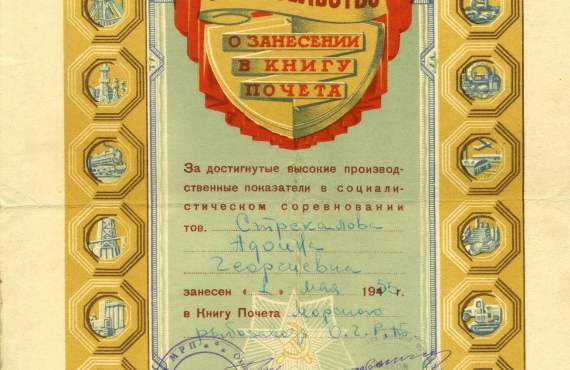 О ЗАНЕСЕНИИ
В КНИГУ
ПОЧЕТА
За достигнутые высокие производ-
ственные показатели в социали-
стическом соревновании
тов. Стрекалова
Георгиевна
занесен « 1 » мая 1955 г.
в Книгу Почета Морского
МРП